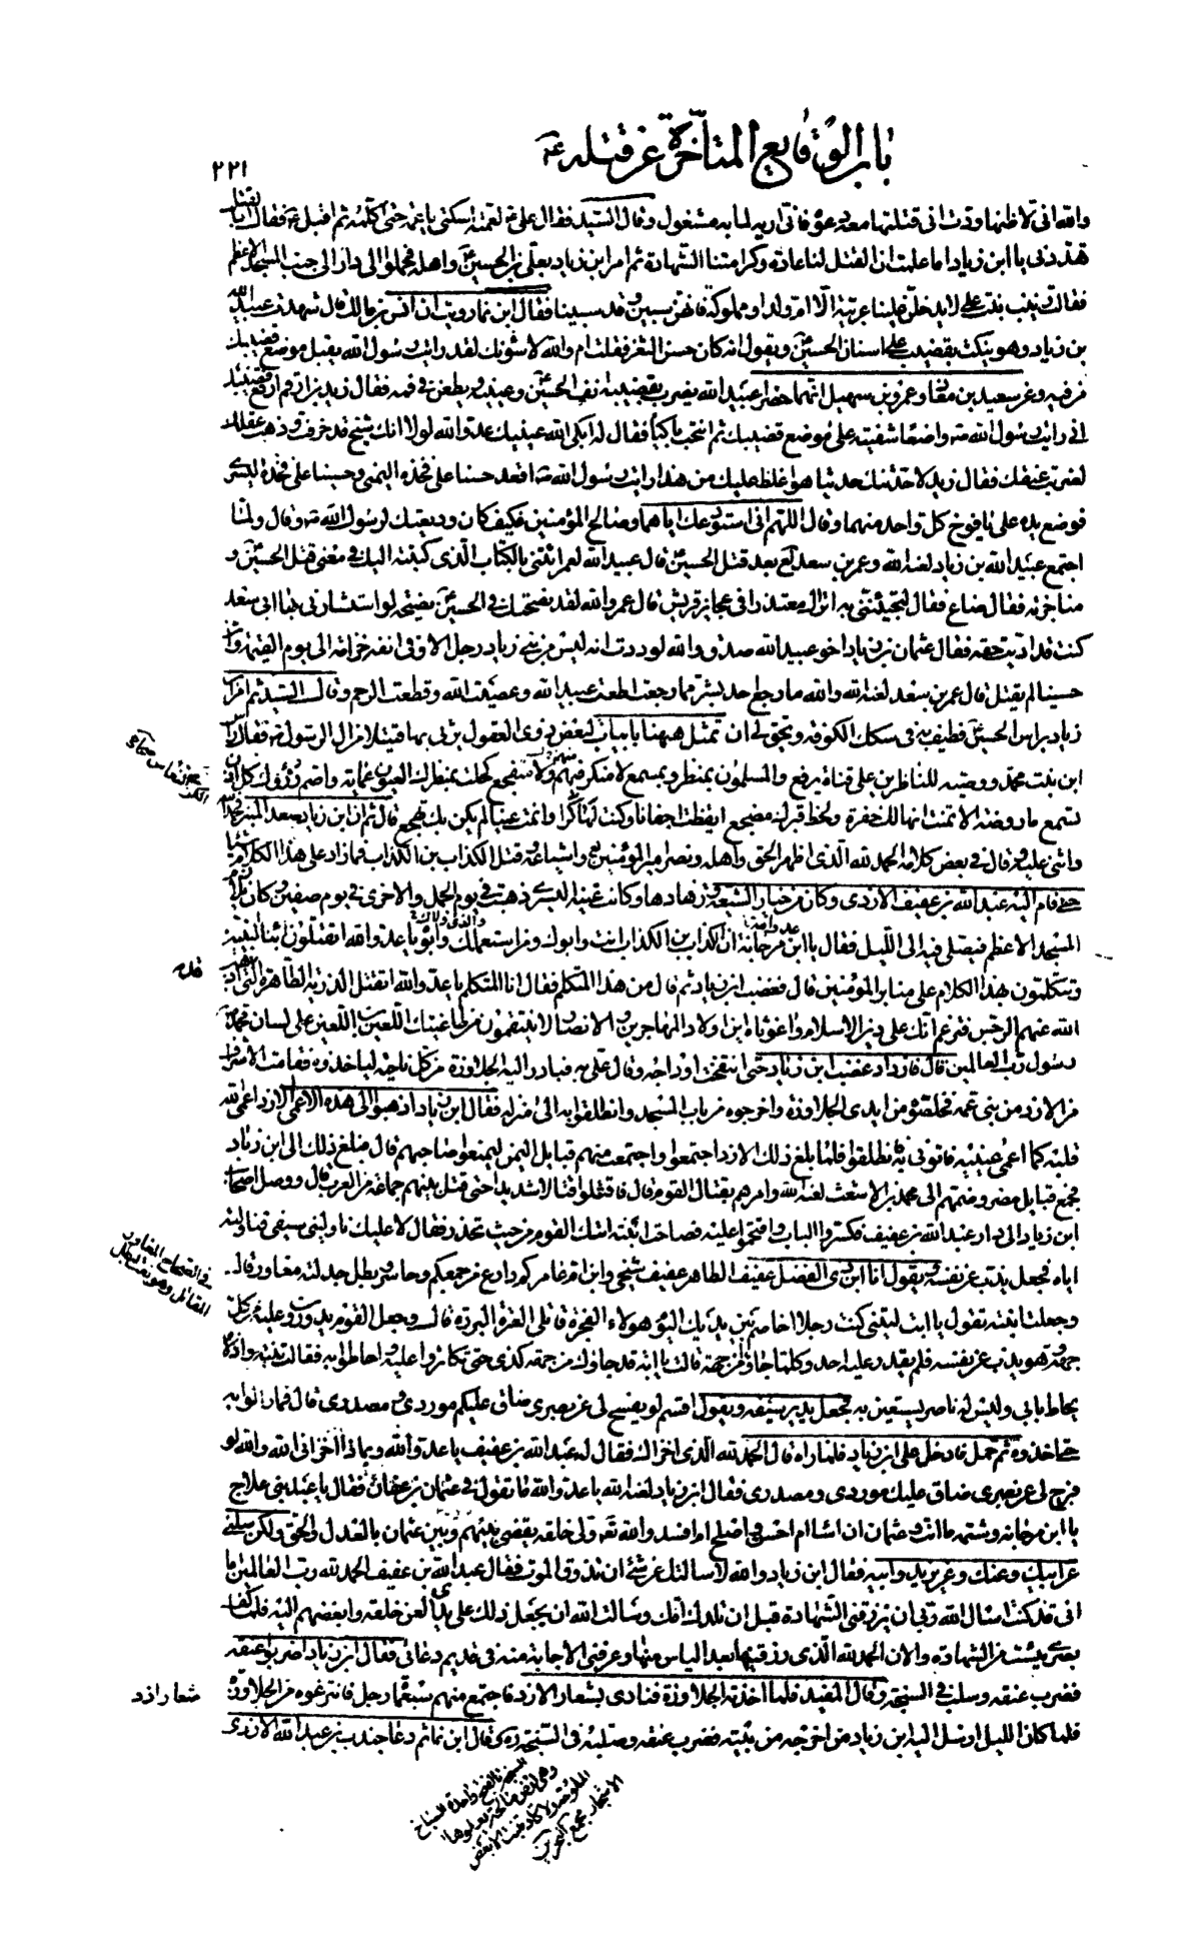 باب الوقايع المتأخرة عن قتله ع
٢٢١
والله انى لاظنها ودت انى قتلتها معه دعوه فانى اريه لما به مشغول وقال السيد فقال على ع لعمته اسكتى يا عمة حتى اكلمه ثم اقبل ع فقال ابالقتل
تهددنى يا ابن زياد اما علمت ان القتل لنا عادة وكرامتنا الشهادة ثم امر ابن زياد بعلى بن الحسين ع واهله فحملوا الى دار الى جنب المسجد الاعظم
فقالت زينب بنت على لا يدخلن علينا عربية الا ام ولد او مملوكة فانهن سبين وقد سبينا فقال ابن نما رويت ان انس بن مالك قال شهدت عبيد الله
بن زياد وهو ينكت بقضيب على اسنان الحسين ع ويقول انه كان حسن الثغر فقلت ام والله لاسوئنك لقد رايت رسول الله يقبل موضع قضيبك
من فيه وعن سعيد بن معاذ وعمر بن سهيل انهما حضرا عبيد الله يضرب بقضيبه انف الحسين ع وعينيه ويطعن فى فمه فقال زيد بن ارقم ارفع قضيبك
انى رايت رسول الله ص واضعا شفتيه على موضع قضيبك ثم انتحب باكيا فقال له ابكى الله عينيك عدو الله لولا انك شيخ قد خرفت وذهب عقلك
لضربت عنقك فقال زيد لاحدثنك حديثا هو اغلظ عليك من هذا رايت رسول الله ص اقعد حسنا على فخذه اليمنى وحسينا على فخذه اليسرى
فوضع يده على يافوخ كل واحد منهما وقال اللهم انى استودعك اياهما وصالح المؤمنين فكيف كان وديعتك لرسول الله ص وقال ولما
اجتمع عبيد الله بن زياد لعنه الله وعمر بن سعد لع بعد قتل الحسين ع قال عبيد الله لعمر ائتنى بالكتاب الذى كتبته اليك فى معنى قتل الحسين ع و
مناجزته فقال ضاع فقال لتجيئننى به اتراك معتذرا فى عجايز قريش قال عمر والله لقد نصحتك فى الحسين ع نصيحة لو استشارنى بها ابى سعد
كنت قد اديت حقه فقال عثمان بن زياد اخو عبيد الله صدق والله لوددت انه ليس من بنى زياد رجل الا وفى انفه خزامة الى يوم القيمة وان
حسينا لم يقتل قال عمر بن سعد لعنه الله والله ما رجع احد بشر مما رجعت اطعت عبيد الله وعصيت الله وقطعت الرحم وقال السيد ثم امر ابن
زياد براس الحسين ع فطيف به فى سكك الكوفة ويحق لى ان اتمثل ههنا بابيات لبعض ذوى العقول يرثى بها قتيلا من ال الرسول ص فقال راس
ابن بنت محمد ووصيه للناظرين على قناة يرفع والمسلمون بمنظر وبمسمع لا منكر منهم ولا متفجع كحلت بمنظرك العيون عماية واصم رزؤك كل اذن
تسمع ما روضة الا تمنت انها لك حفرة ولخط قبرك مضجع ايقظت اجفانا وكنت لها كرا وانمت عينا لم يكن بك تهجع قال ثم ان ابن زياد صعد المنبر فحمد الله
واثنى عليه وقال فى بعض كلامه الحمد لله الذى اظهر الحق واهله ونصر امير المؤمنين واشياعه وقتل الكذاب بن الكذاب فما زاد على هذا الكلام شيئا
حتى قام اليه عبد الله بن عفيف الازدى وكان من خيار الشيعة وزهادها وكانت عينه اليسرى ذهبت فى يوم الجمل والاخرى فى يوم صفين وكان يلازم
المسجد الاعظم فيصلى فيه الى الليل فقال يا ابن مرجانة ان الكذاب بن الكذاب انت وابوك ومن استعملك وابوه يا عدو الله اتقتلون ابناء النبيين
وتتكلمون بهذا الكلام على منابر المؤمنين قال فغضب ابن زياد ثم قال من هذا المتكلم فقال انا المتكلم يا عدو الله اتقتل الذرية الطاهرة التى اذهب
الله عنهم الرجس وتزعم انك على دين الاسلام واغوثاه اين اولاد المهاجرين والانصار لا ينتقمون من طاغيتك اللعين بن اللعين على لسان محمد
رسول رب العالمين قال فازداد غضب ابن زياد حتى انتفخت اوداجه وقال على به فبادر اليه الجلاوزة من كل ناحية لياخذوه فقامت الاشراف
من الازد من بنى عمه فخلصوه من ايدى الجلاوزة واخرجوه من باب المسجد وانطلقوا به الى منزله فقال ابن زياد اذهبوا الى هذا الاعمى اعمى الازد اعمى الله
قلبه كما اعمى عينيه فاتونى به فانطلقوا فلما بلغ ذلك الازد اجتمعوا واجتمعت معهم قبايل اليمن ليمنعوا صاحبهم قال فبلغ ذلك الى ابن زياد
فجمع قبايل مضر وضمهم الى محمد بن الاشعث لعنه الله وامرهم بقتال القوم قال فاقتتلوا قتالا شديدا حتى قتل بينهم جماعة من العرب قال ووصل اصحاب
ابن زياد الى دار عبد الله بن عفيف فكسروا الباب واقتحموا عليه فصاحت ابنته اتاك القوم من حيث تحذر فقال لا عليك ناولينى سيفى فناولته
اياه فجعل يذب عن نفسه ويقول انا ابن ذى الفضل عفيف الطاهر عفيف شيخى وابن ام عامر كم دارع من جمعكم وحاسر وبطل جدلته مغاور قال
وجعلت ابنته تقول يا ابت ليتنى كنت رجلا اخاصم بين يديك اليوم هؤلاء الفجرة قاتلى العترة البررة قال وجعل القوم يدورون عليه من كل
جهة وهو يذب عن نفسه فلم يقدر عليه احد وكلما جاؤه من جهة قالت يا ابه قد جاؤك من جهة كذى حتى تكاثروا عليه واحاطوا به فقالت بنته واذلاه
يحاط بابى وليس له ناصر يستعين به فجعل يدير سيفه ويقول اقسم لو يفسح لى عن بصرى ضاق عليكم موردى ومصدرى قال فما زالوا به
حتى اخذوه ثم حمل فادخل على ابن زياد فلما راه قال الحمد لله الذى اخزاك فقال له عبد الله بن عفيف يا عدو الله وبماذا اخزانى الله والله لو
فرج لى عن بصرى ضاق عليك موردى ومصدرى فقال ابن زياد لعنه الله يا عدو الله ما تقول فى عثمان بن عفان فقال يا عبد بنى علاج
يا ابن مرجانة وشتمه ما انت وعثمان ان اساء ام احسن واصلح ام افسد والله تع ولى خلقه يقضى بينهم وبين عثمان بالعدل والحق ولكن سلنى
عن ابيك وعنك وعن يزيد وابيه فقال ابن زياد والله لا سالتك عن شئ او تذوق الموت فقال عبد الله بن عفيف الحمد لله رب العالمين اما
انى قد كنت اسال الله ربى ان يرزقنى الشهادة قبل ان تلدك امك وسالت الله ان يجعل ذلك على يدى العن خلقه وابغضهم اليه فلما كف
بصرى يئست من الشهادة والان الحمد لله الذى رزقنيها بعد الياس منها وعرفنى الاجابة منه فى قديم دعائى فقال ابن زياد اضربوا عنقه
فضرب عنقه وصلب فى السبخة وقال المفيد فلما اخذته الجلاوزة فنادى بشعار الازد فاجتمع منهم سبعمأة رجل فانتزعوه من الجلاوزة
شعار ازد
فلما كان الليل ارسل اليه ابن زياد من اخرجه من بيته فضرب عنقه وصلبه فى السبخة ره وقال ابن نما ثم دعا جندب بن عبد الله الازدى